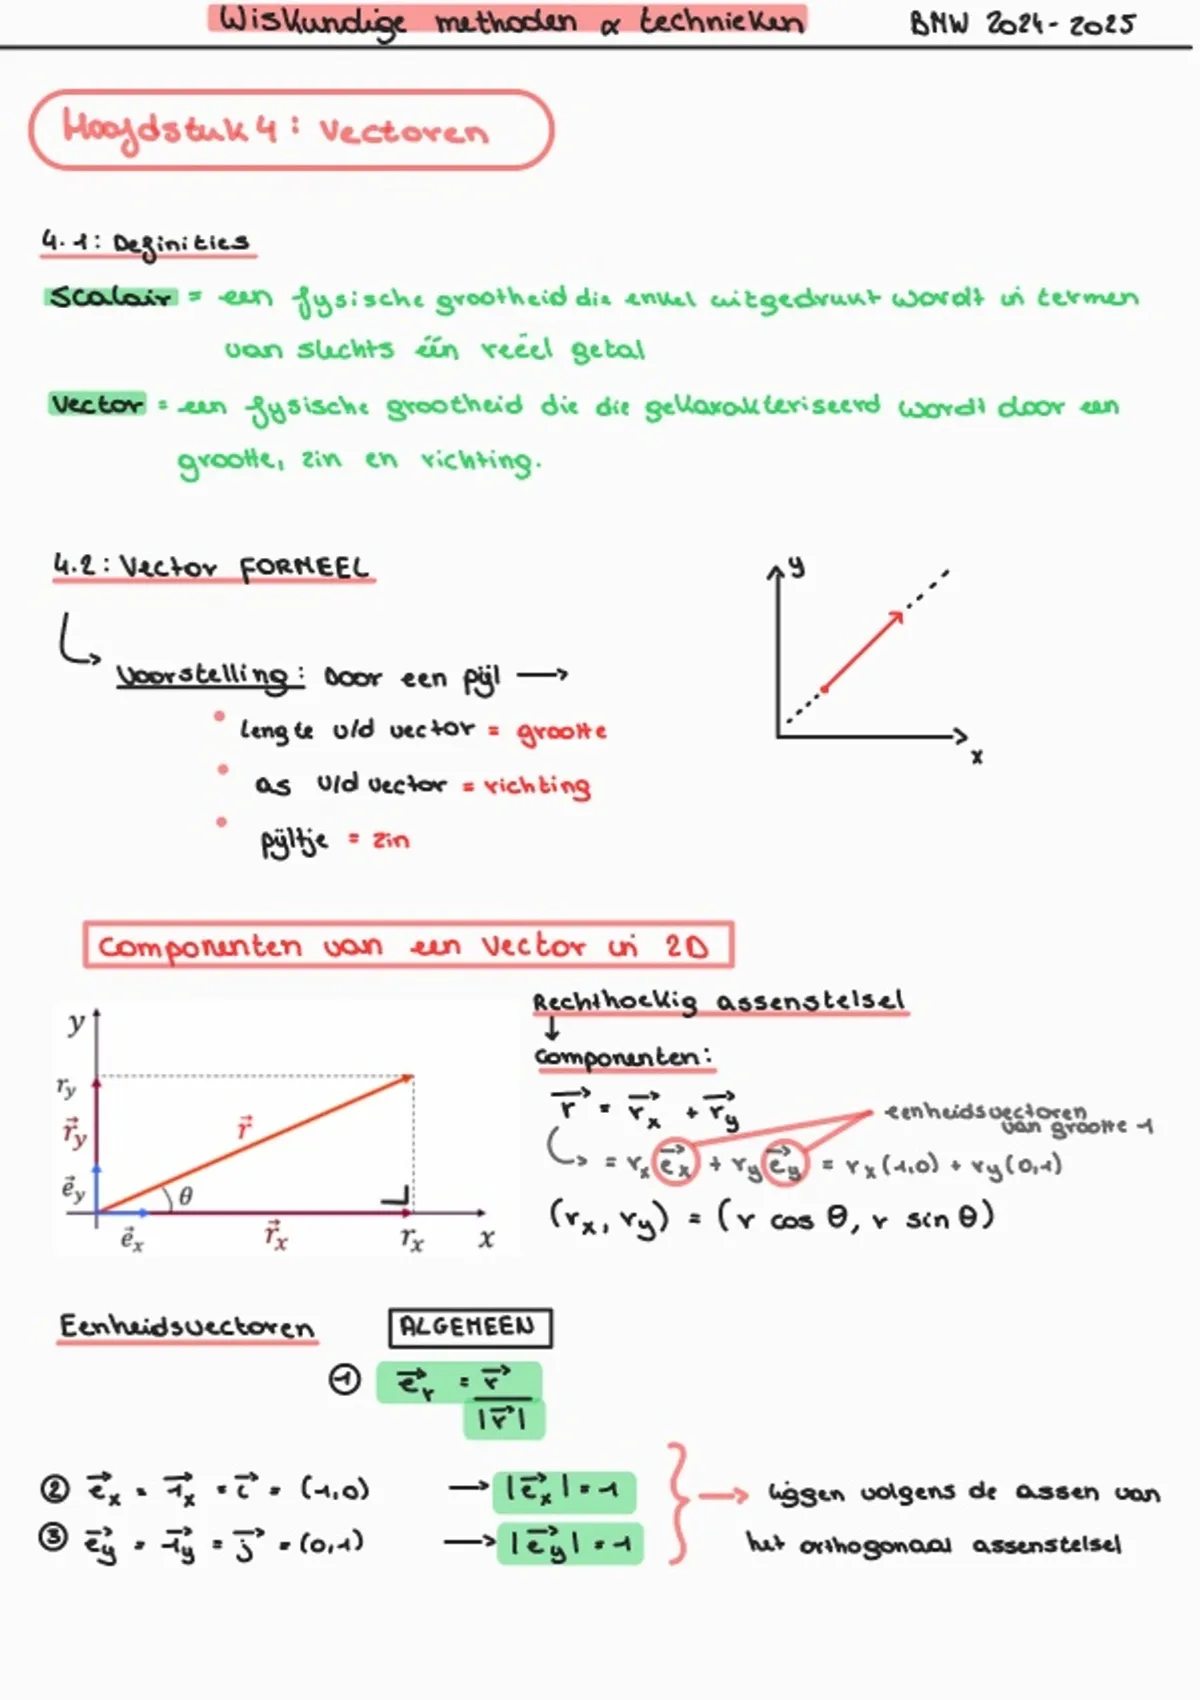 Wiskundige methoden & technieken BMW 2024-2025
Hoofdstuk 4: Vectoren
4.1: Definities
Scalair = een fysische grootheid die enkel uitgedrukt wordt in termen
van slechts één reëel getal
Vector = een fysische grootheid die die gekarakteriseerd wordt door een
grootte, zin en richting.
4.2: Vector FORMEEL
y
x
Voorstelling: Door een pijl →
• lengte v/d vector = grootte
• as v/d vector = richting
• pijltje = zin
Componenten van een vector in 2D
y
r_y
r⃗_y
e⃗_y
r⃗
θ
e⃗_x
r⃗_x
r_x
x
Rechthoekig assenstelsel
↓
Componenten:
r⃗ = r⃗_x + r⃗_y
eenheidsvectoren
van grootte 1
↳ = r_x e⃗_x + r_y e⃗_y = r_x(1,0) + r_y(0,1)
(r_x, r_y) = (r cos θ, r sin θ)
Eenheidsvectoren ALGEMEEN
① e⃗_r = r⃗
|r⃗|
② e⃗_x = 1⃗_x = i⃗ = (1,0) → |e⃗_x| = 1
③ e⃗_y = 1⃗_y = j⃗ = (0,1) → |e⃗_y| = 1
→ liggen volgens de assen van
het orthogonaal assenstelsel